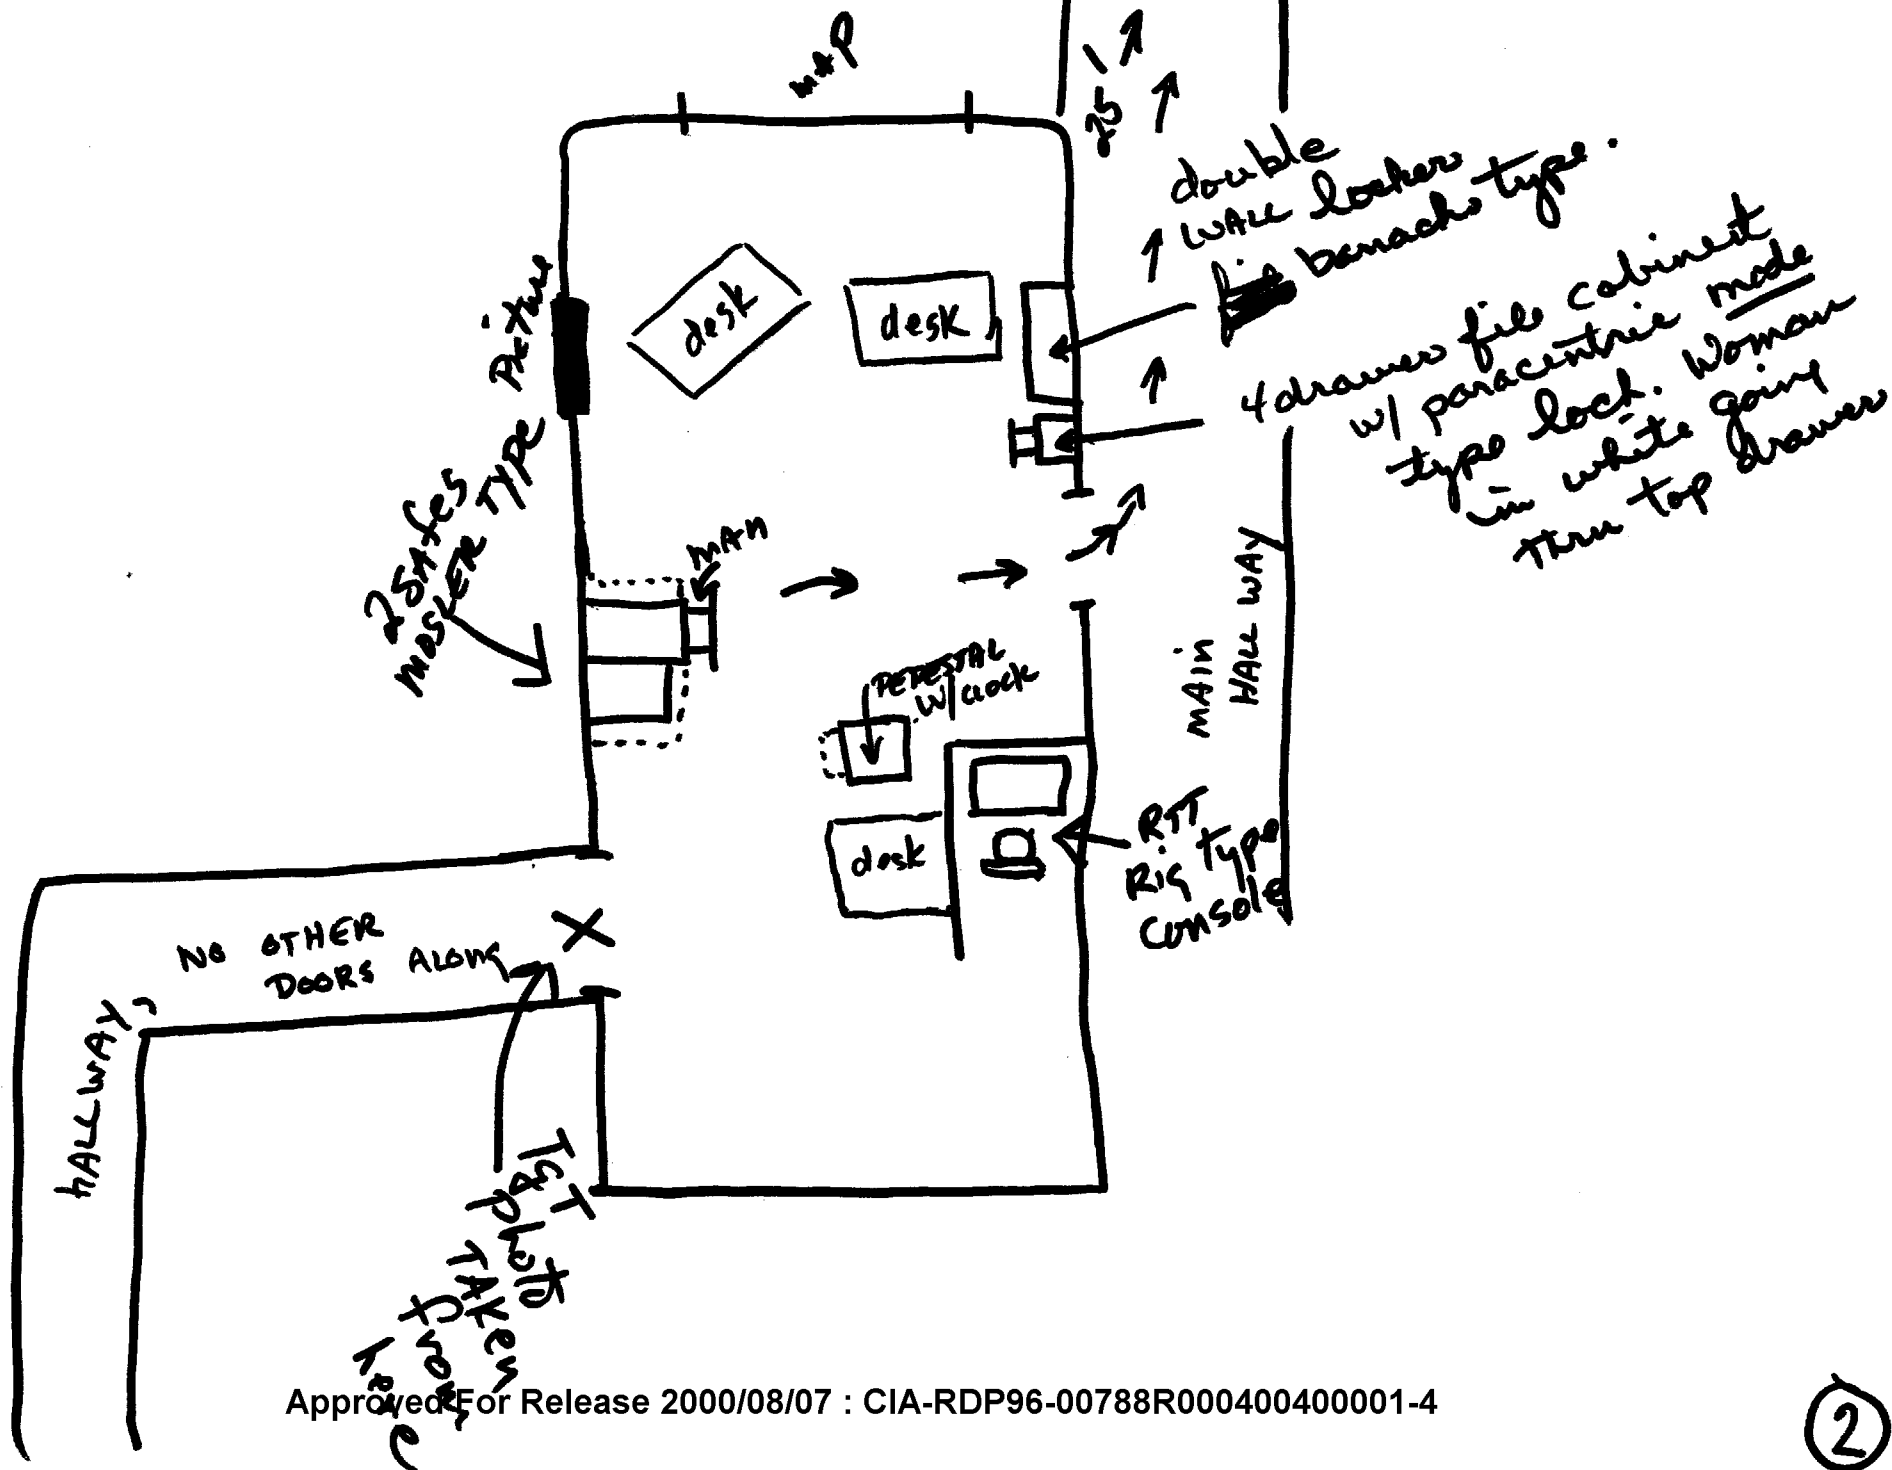 MAP
25 1
double
WALL locker
barracks type.
4 drawer file cabinet
w/ paracentric made
type lock. Woman
in white going
thru top drawer
Picture
desk
desk
2 SAfes
MOSLER TYPE
MAN
MAIN
HALL WAY
PEDESTAL
w/ clock
desk
RTT
Rig type
console
NO OTHER
DOORS ALONG
HALLWAY
TGT
photo
TAKEN
from
here
Approved For Release 2000/08/07 : CIA-RDP96-00788R000400400001-4
2